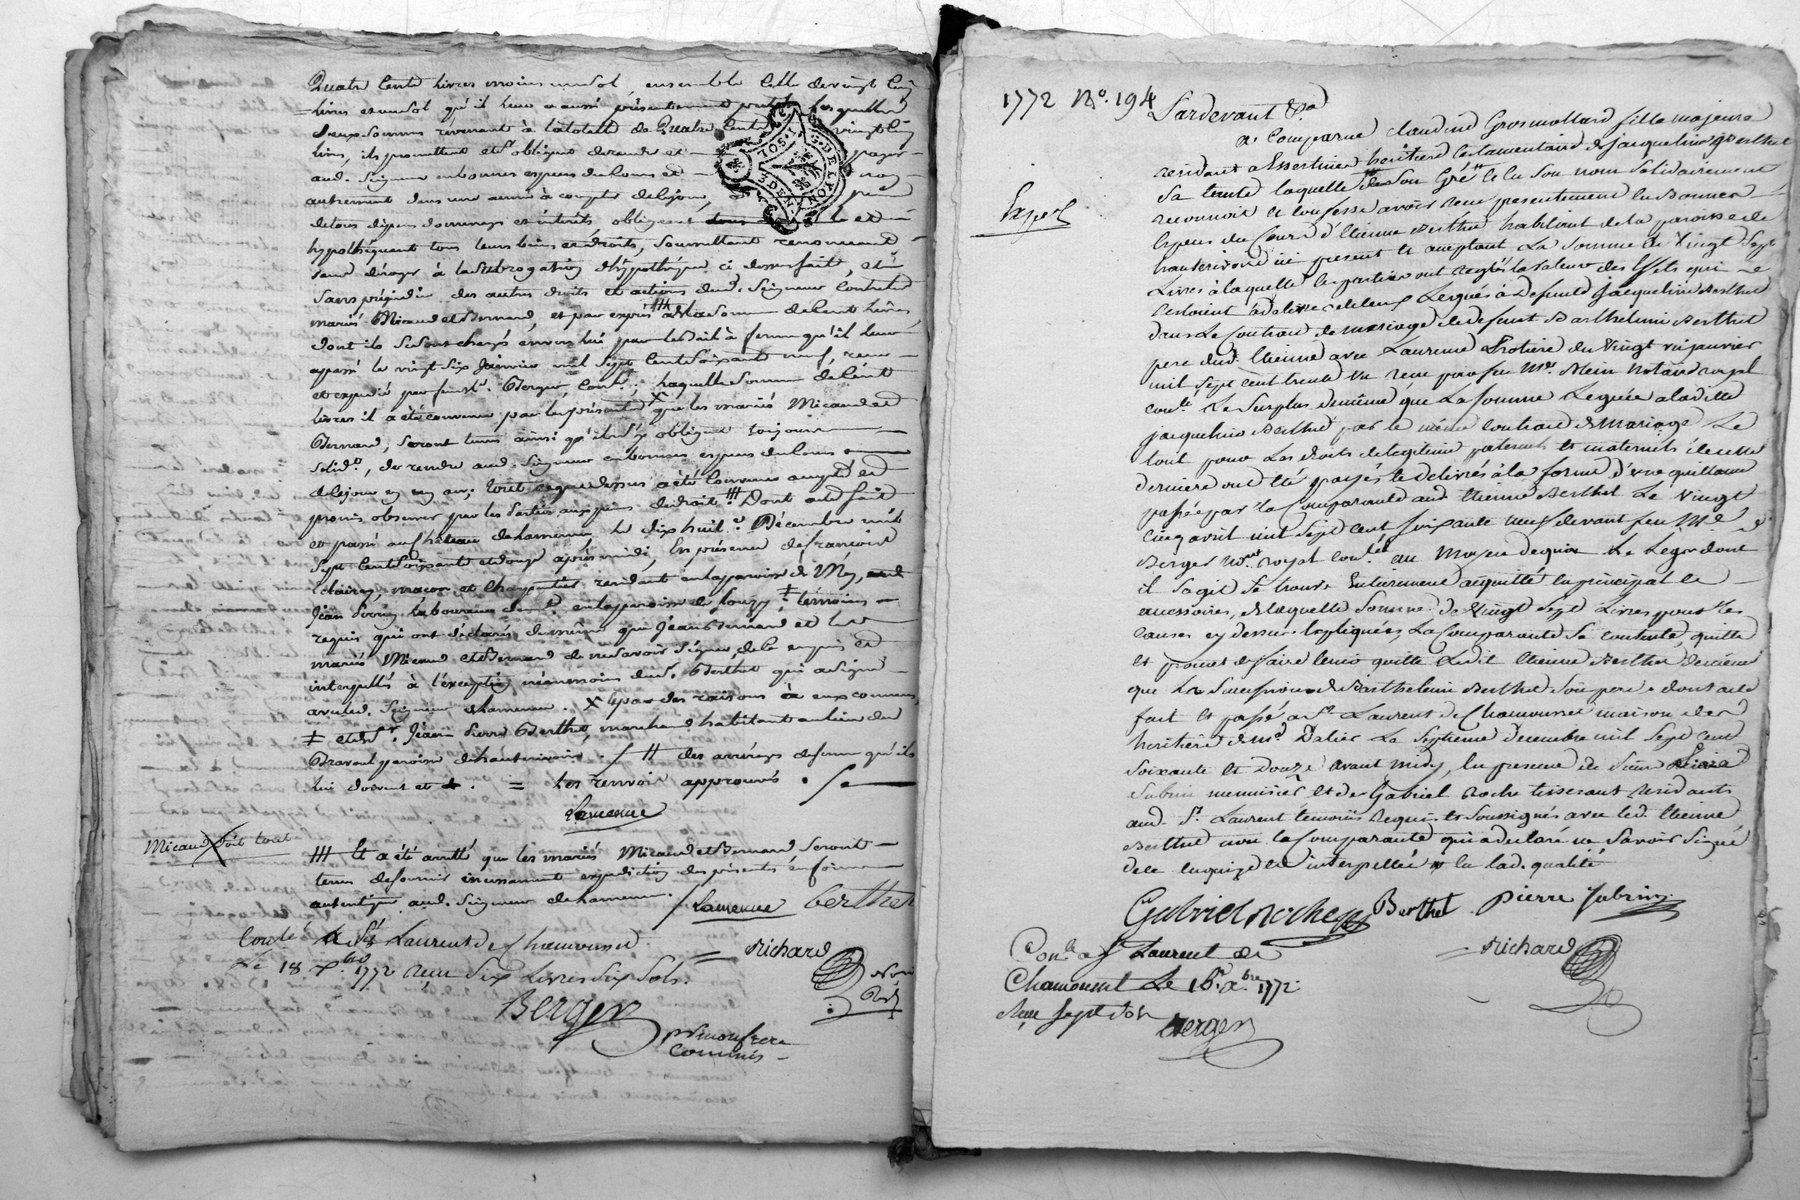 Quatre Cents Livres moins un sol, ensemble Celle de vingt Cinq
Livres et un sol qu'il leur a aussi présentement
deux sommes revenant à la totale de Quatre Cents vingt Cinq
Livres, ils promettent et s'obligent de rendre et payer
aud. Seigneur en bonnes especes de Cours
autrement dans une année à compter de ce jour,
de tous dépens dommages et intérêts, obligeant
hypothéquant tous leurs biens et droits, Soumettant renonceant
sans déroger à la Subrogation d'hypothéque ci dessus faite, et
Sans préjudice des autres droits et actions dud. Seigneur Contre lesd.
mariés Micaud et Bernard, et par exprès /// de la Somme de Cent livres
dont ils se sont chargés envers lui par le Bail à ferme qu'il leur
a passé le vingt six Janvier mil Sept Cent Soixante neuf, reçu
et expédié par feu Me. Berger, Laquelle Somme de Cent
livres il a été convenu par les présentes X que les mariés Micaud et
Bernard, Seront tenus ainsi qu'ils s'y obligent toujours
Solid.t, de rendre aud. Seigneur en bonnes especes de Cours
de ce jour en un an; tout ce que dessus a été Convenu accepté et
promis observer par les Parties aux peines de droit /// Dont acte fait
et passé au Château de Lamenue, le dix huit Décembre mil
Sept Cent Soixante et douze après midi, En présence de francois
Clairet, maçon et Charpentier residant en la paroisse de
Jean Perrin Laboureur dem.t en la paroisse de Jouzy ‡ témoins
requis qui ont déclaré de même que Jean Bernard et les
mariés Micaud et Bernard de ne Savoir Signer, de ce enquis et
interpellés à l'exception néanmoins dud. Berthet qui a signé
avec led. Seigneur de Lamenue. X pour des raisons à eux connues
‡ et de Sr. Jean Pierre Berthet, marchand habitant au lieu du
paroisse de hauterivoire ./ ++ des arrérages de ferme qu'ils
lui doivent et = Les renvois approuvés ./.
Lamenue
Micaud doit tout
/// Et a été arretté que les mariés Micaud et Bernard Seront
tenus de fournir incessamment expédition des présentes en forme
autentique aud. Seigneur de Lamenue. / Lamenue berthet
Conlé à St Laurent de Chamousset = Richard
Le 18 Xbre 1772 reçu Six Livres Six Sols.
Berger
commis
1772 No. 194 Pardevant &a
a Comparue Claudine Grosmollard fille majeure
residant a Essertines héritiere testamentaire de jacqueline Berthet
Expé
Sa tante laquelle de Son Gré et en Son nom Solidairement
reconnoit et Confesse avoir reçu presentement en Bonnes
Espèces du Cours d'Etienne Berthet habitant de la paroisse de
hauterivoire ici present et acceptant La Somme de Vingt Sept
Livres à laquelle les parties ont reglés la Valeur des Effets qui
restoient à delivrer de ceux Legués à Defunte Jacqueline Berthet
dans Le Contrat de mariage de defunt Barthelemi Berthet
pere dud. Etienne avec Laurence Protiere du Vingt un janvier
mil Sept Cent trente un recu par feu Me. Mein notaire royal
Conlé Le Surplus de même que La Somme Leguée a ladite
jacqueline Berthet par le même Contrat de Mariage Le
tout pour Les droits de Legitime paternels et maternels de cette
derniere ont été payés et delivrés à la forme d'une quittance
passée par la Comparante aud. Etienne Berthet Le Vingt
Cinq avril mil Sept Cent Soixante neuf devant feu Me
Berger Nore royal Conlée au Moyen dequoi Le Legs dont
il S'agit Se trouve Entierement acquitté En principal et
accessoires, de laquelle Somme de Vingt Sept Livres pour les
causes cy dessus Expliquées La Comparante Se contente, quitte
et promet de faire tenir quitte Ledit Etienne Berthet de même
que La Succession de Barthelemi Berthet Son pere, dont acte
fait et passé a St Laurent de Chamousset maison des
heritiers de Mr. Dalier Le Septieme decembre mil Sept Cent
Soixante et Douze avant midy, En presence de Pierre
Subrin menuisier et de Gabriel Roche tisserant residants
aud. St. Laurent temoins Requis et Soussignés avec led. Etienne
Berthet non la Comparante qui a declaré ne Savoir Signer
de ce Enquise et interpellée en lad. qualité
Gabriel roche Berthet Pierre Subrin
Conlé a St Laurent de = Richard
Chamousset Le 18 Xbre 1772
Reçu Sept Sols
Berger